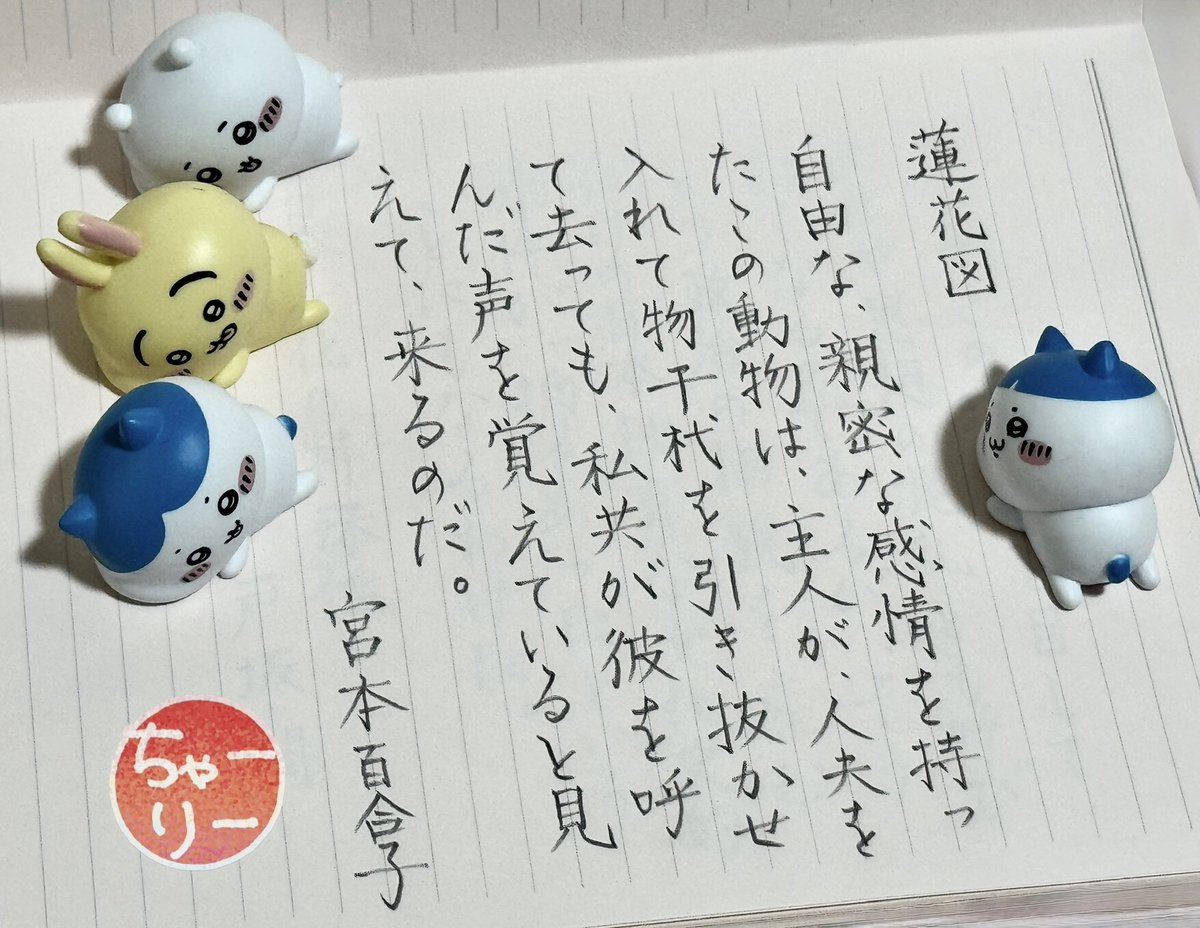 蓮花図
自由な、親密な感情を持っ
たこの動物は、主人が、人夫を
入れて物干杙を引き抜かせ
て去っても、私共が彼を呼
んだ声を覚えていると見
えて、来るのだ。
宮本百合子
ちゃー
りー